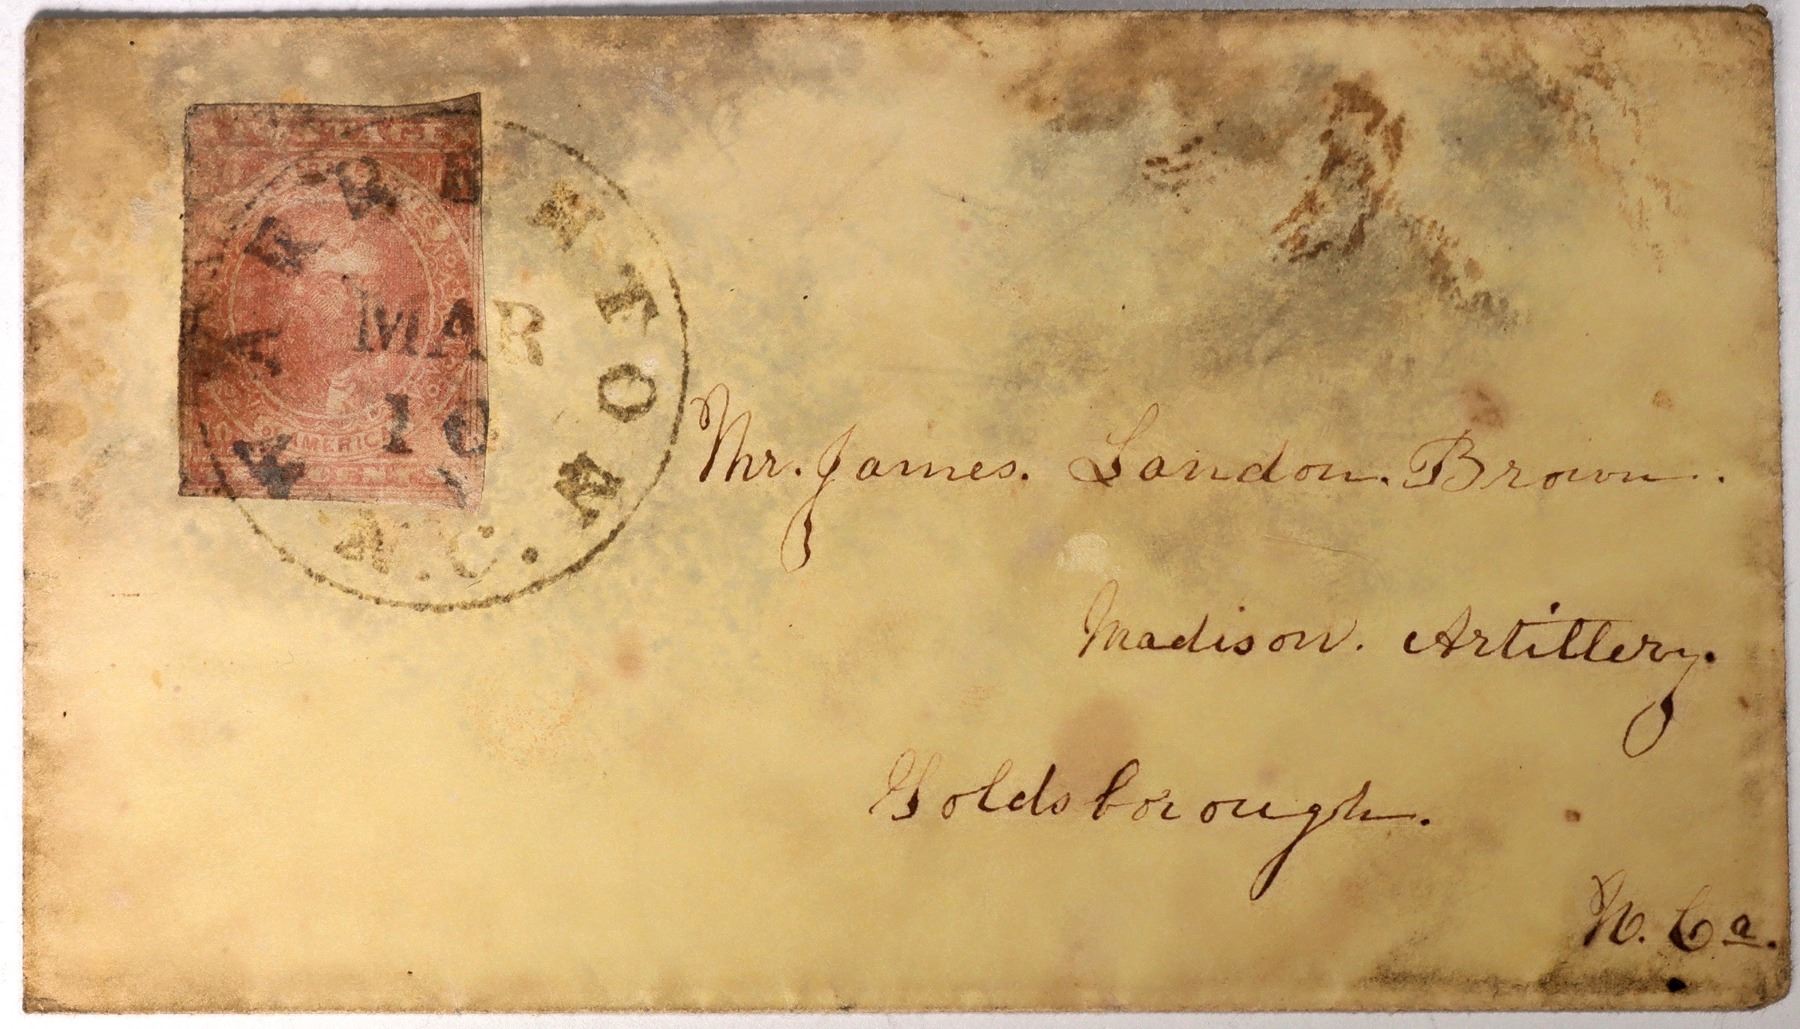 POSTAGE
OF AMERICA
CENTS
WARRENTON
N.C.
MAR
10
Mr. James. Landon. Brown.
Madison. Artillery.
Goldsborough.
N. Ca.